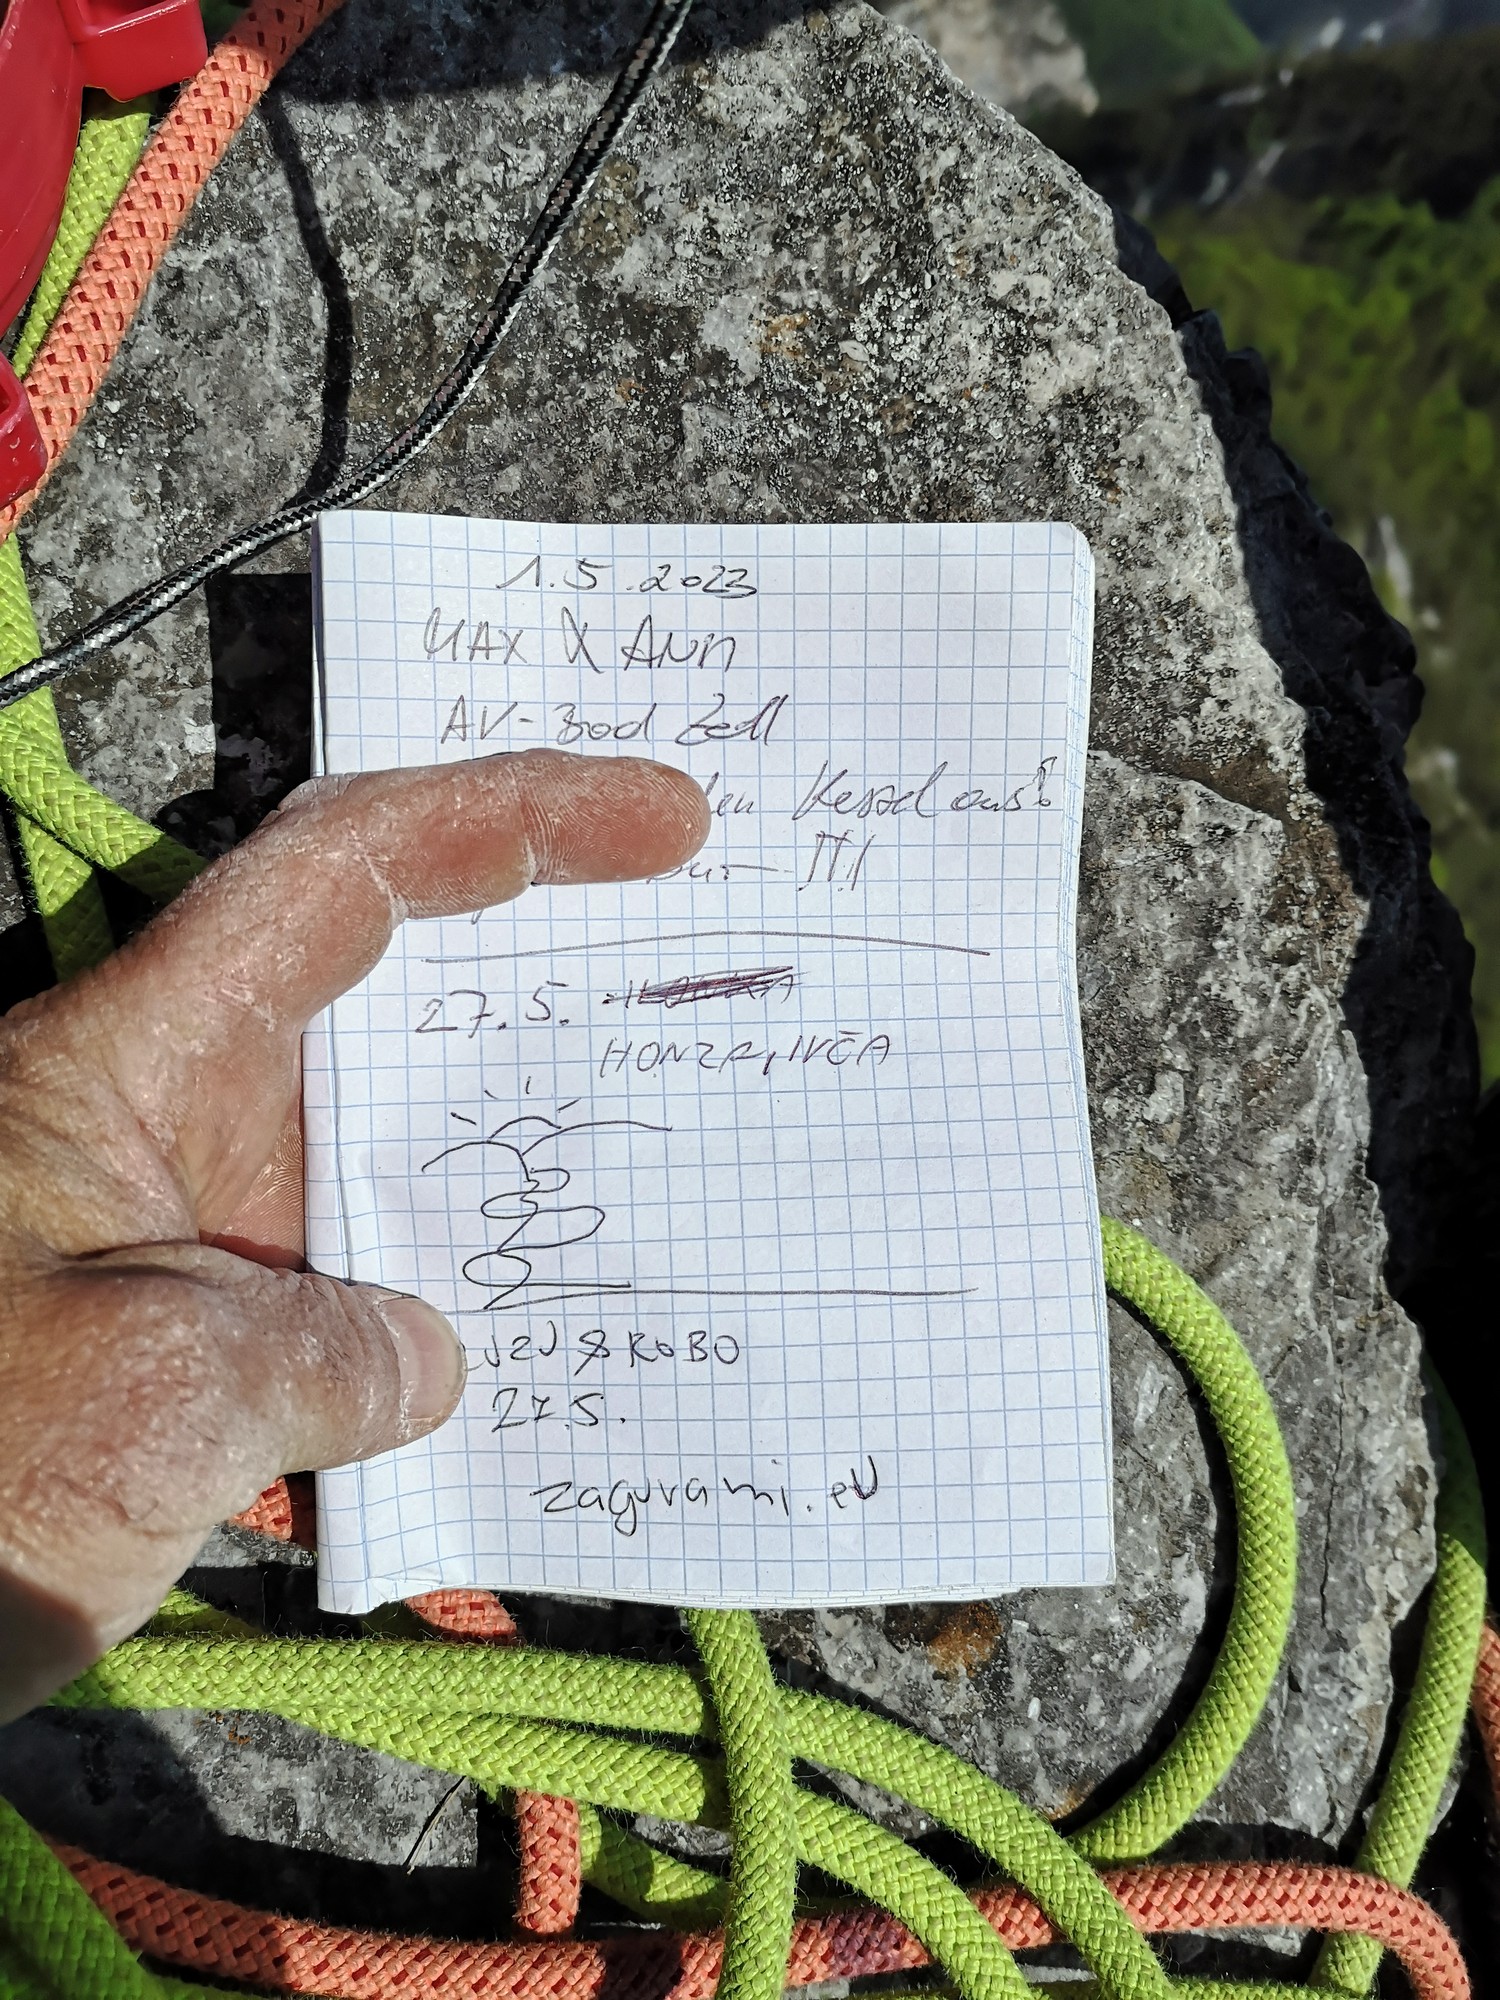 1.5.2023
MAX & ANN
AV-Bad Zell
Kessel aus!
27.5.
HONZA, IVČA
& KOBO
27.5.
zagurami.eu